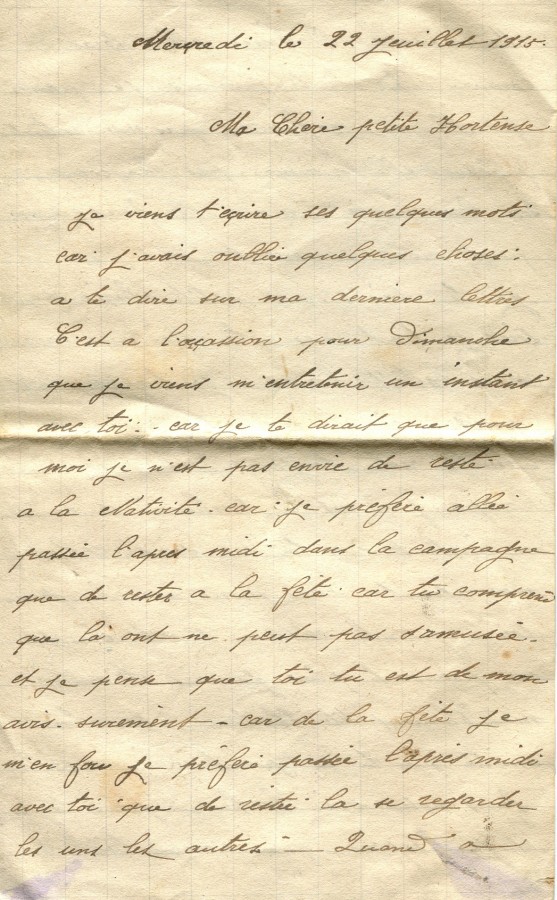 Mercredi le 22 Juillet 1915.
Ma Chere petite Hortense
Je viens t'eçrire ses quelques mots
car j'avais oublié quelques choses.
a te dire sur ma derniere lettres
C'est a l'ocçassion pour Dimanche
que je viens m'entretenir un instant
avec toi. car je te dirait que pour
moi je n'est pas envie de resté
a la Nativité. car je préfère allée
passée l'apres midi dans la campagne
que de rester a la fête car tu comprend
que là ont ne peut pas s'amusée.
et je pense que toi tu est de mon
avis. surement - car de la fête je
m'en fou je préfère passée l'après midi
avec toi que de restée la se regarder
les uns les autres. — Quand a